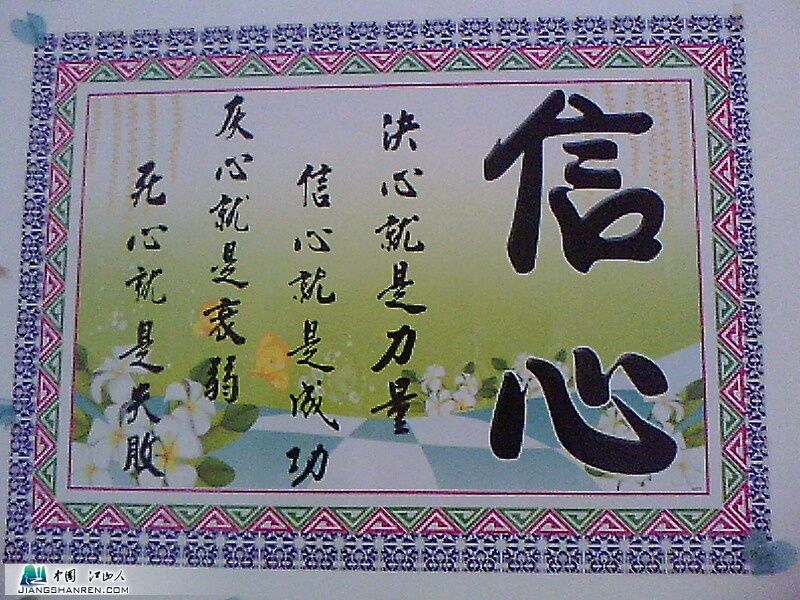 信心
决心就是力量
信心就是成功
灰心就是衰弱
死心就是失败
中国 江山人
JIANGSHANREN.COM